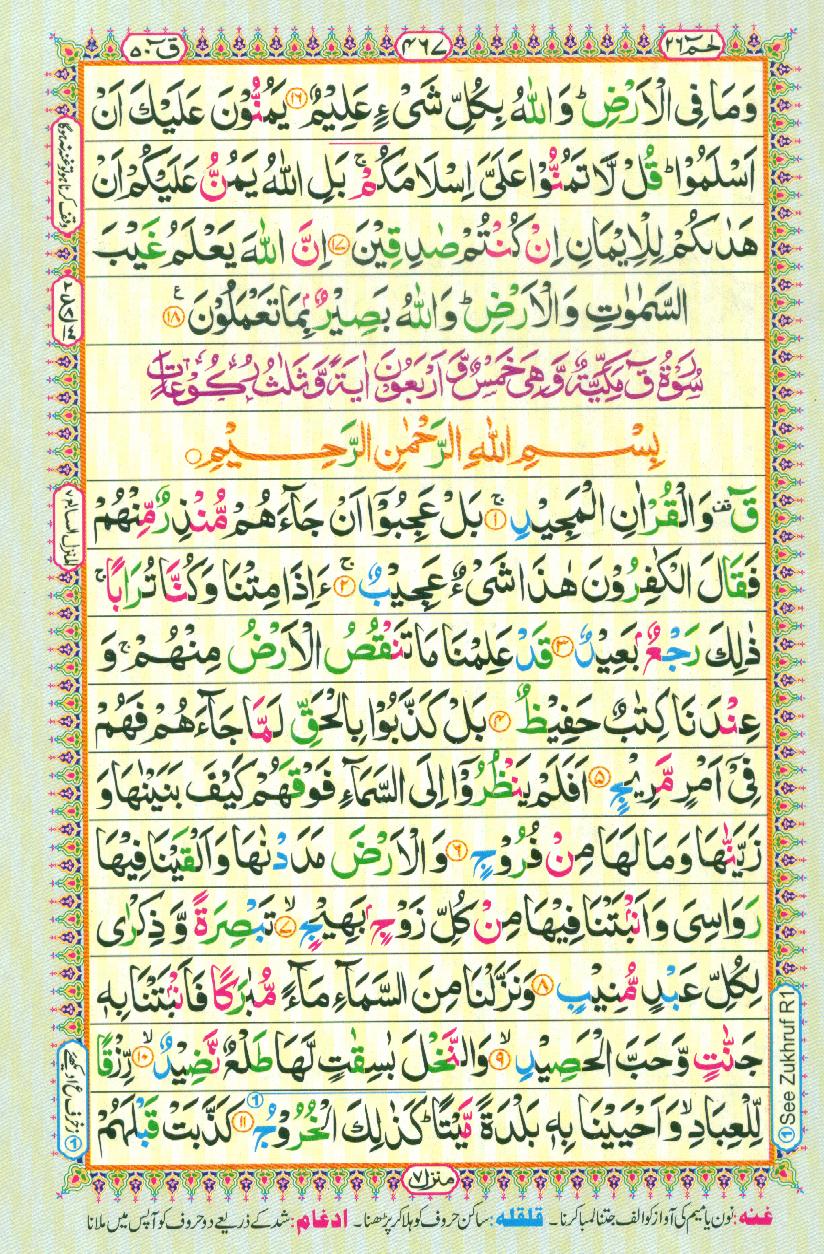 حٰمٓ ٢٦
٤٦٧
قٓ ٥٠
وَمَا فِى الْاَرْضِ ؕ وَاللّٰهُ بِكُلِّ شَىْءٍ عَلِيْمٌ ﴿۱۶﴾ يَمُنُّوْنَ عَلَيْكَ اَنْ
اَسْلَمُوْا ؕ قُلْ لَّا تَمُنُّوْا عَلَىَّ اِسْلَامَكُمْ ۚ بَلِ اللّٰهُ يَمُنُّ عَلَيْكُمْ اَنْ
هَدٰٮكُمْ لِلْاِيْمَانِ اِنْ كُنْتُمْ صٰدِقِيْنَ ﴿۱۷﴾ اِنَّ اللّٰهَ يَعْلَمُ غَيْبَ
السَّمٰوٰتِ وَالْاَرْضِ ؕ وَاللّٰهُ بَصِيْرٌۢ بِمَا تَعْمَلُوْنَ ﴿۱۸﴾ ع
سُوْرَةُ قٓ مَكِّيَّةٌ وَّهِىَ خَمْسٌ وَّ اَرْبَعُوْنَ اٰيَةً وَّثَلٰثُ رُكُوْعَاتٍ
بِسْمِ اللّٰهِ الرَّحْمٰنِ الرَّحِيْمِ ○
قٓ ۛۚ وَالْقُرْاٰنِ الْمَجِيْدِ ۚ ﴿۱﴾ بَلْ عَجِبُوْۤا اَنْ جَآءَهُمْ مُّنْذِرٌ مِّنْهُمْ
فَقَالَ الْكٰفِرُوْنَ هٰذَا شَىْءٌ عَجِيْبٌ ۚ ﴿۲﴾ ءَاِذَا مِتْنَا وَكُنَّا تُرَابًا ۚ
ذٰلِكَ رَجْعٌۢ بَعِيْدٌ ﴿۳﴾ قَدْ عَلِمْنَا مَا تَنْقُصُ الْاَرْضُ مِنْهُمْ ۚ وَ
عِنْدَنَا كِتٰبٌ حَفِيْظٌ ﴿۴﴾ بَلْ كَذَّبُوْا بِالْحَقِّ لَمَّا جَآءَهُمْ فَهُمْ
فِىْۤ اَمْرٍ مَّرِيْجٍ ﴿۵﴾ اَفَلَمْ يَنْظُرُوْۤا اِلَى السَّمَآءِ فَوْقَهُمْ كَيْفَ بَنَيْنٰهَا وَ
زَيَّنّٰهَا وَمَا لَهَا مِنْ فُرُوْجٍ ﴿۶﴾ وَالْاَرْضَ مَدَدْنٰهَا وَاَلْقَيْنَا فِيْهَا
رَوَاسِىَ وَاَنْۢبَتْنَا فِيْهَا مِنْ كُلِّ زَوْجٍۢ بَهِيْجٍ ۙ ﴿۷﴾ تَبْصِرَةً وَّذِكْرٰى
لِكُلِّ عَبْدٍ مُّنِيْبٍ ﴿۸﴾ وَنَزَّلْنَا مِنَ السَّمَآءِ مَآءً مُّبٰرَكًا فَاَنْۢبَتْنَا بِهٖ
جَنّٰتٍ وَّحَبَّ الْحَصِيْدِ ۙ ﴿۹﴾ وَالنَّخْلَ بٰسِقٰتٍ لَّهَا طَلْعٌ نَّضِيْدٌ ۙ ﴿۱۰﴾ رِّزْقًا
لِّلْعِبَادِ ۙ وَاَحْيَيْنَا بِهٖ بَلْدَةً مَّيْتًا ؕ كَذٰلِكَ الْخُرُوْجُ ① ﴿۱۱﴾ كَذَّبَتْ قَبْلَهُمْ
① See Zukhruf R1
منزل ٧
غنه: نون یا میم کی آواز کو الف جتنا لمبا کرنا۔ قلقله: ساکن حروف کو ہلا کر پڑھنا۔ ادغام: شد کے ذریعے دو حروف کو آپس میں ملانا